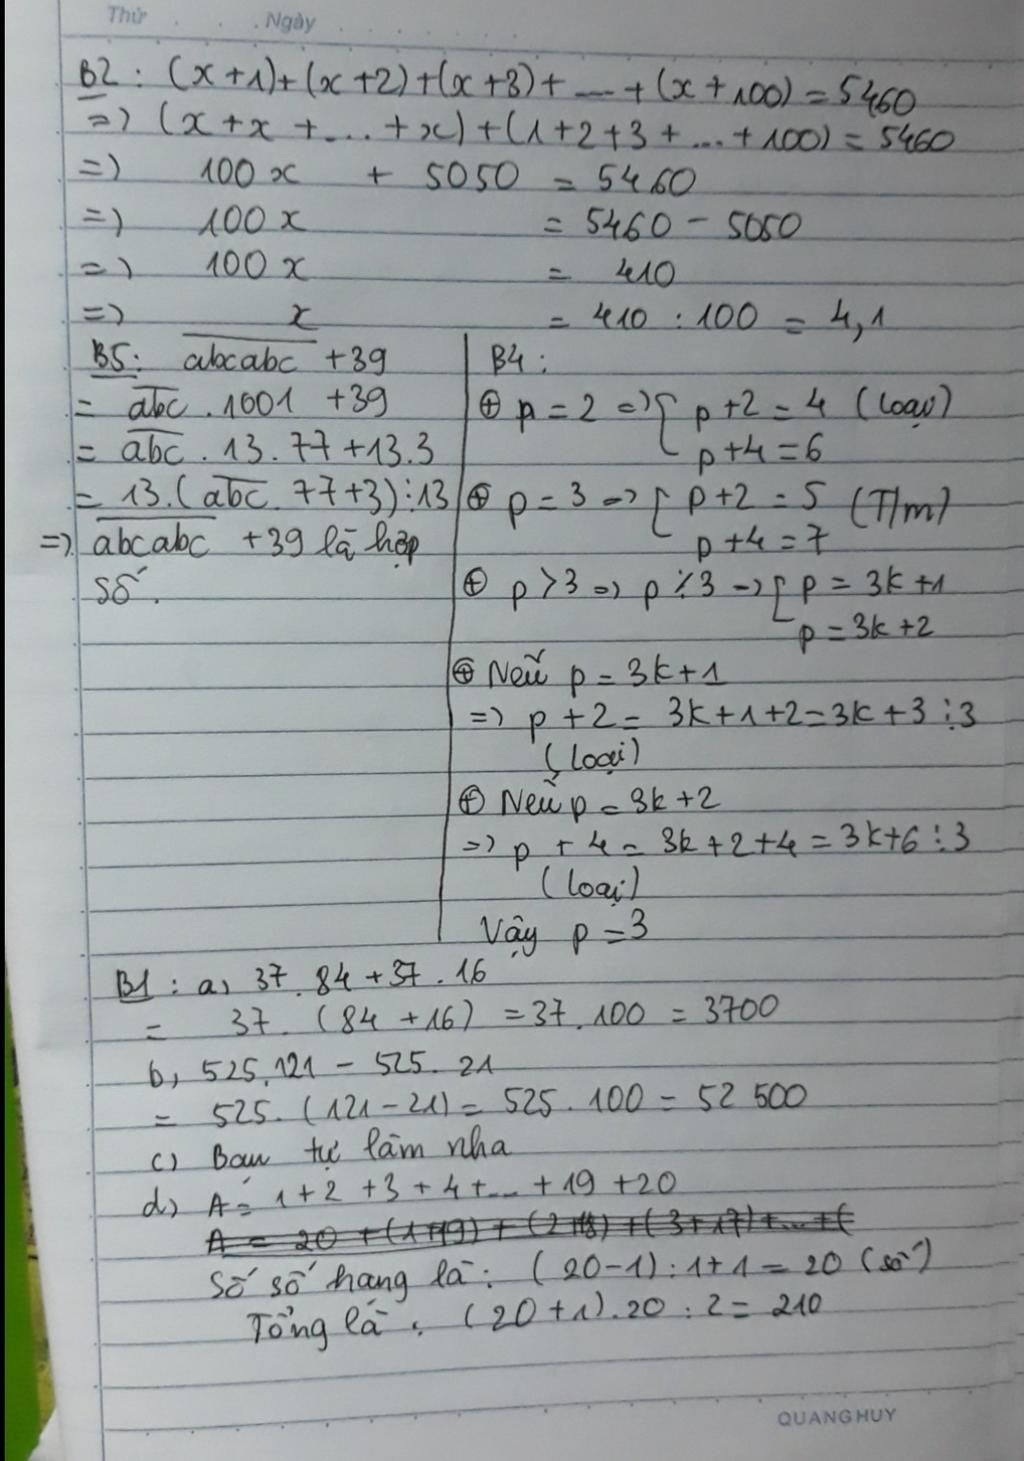 Thứ . . . Ngày
B2 : (x+1)+(x+2)+(x+3)+ ... +(x+100)=5460
=> (x+x+...+x)+(1+2+3+...+100)=5460
=> 100x + 5050 = 5460
=> 100x = 5460 - 5050
=> 100x = 410
=> x = 410 : 100 = 4,1
B5: abcabc + 39
= abc . 1001 + 39
= abc . 13 . 77 + 13.3
= 13.(abc . 77+3)⋮13
=> abcabc + 39 là hợp
số.
B4 :
⊕ p = 2 => [ p+2 = 4 (loại)
p+4 = 6
⊕ p = 3 => [ p+2 = 5 (T/m)
p+4 = 7
⊕ p > 3 => p ⋮̸ 3 => [ p = 3k+1
p = 3k+2
⊕ Nếu p = 3k+1
=> p + 2 = 3k+1+2=3k+3⋮3
(loại)
⊕ Nếu p = 3k+2
=> p + 4 = 3k+2+4=3k+6⋮3
(loại)
Vậy p = 3
B1 : a, 37.84+37.16
= 37.(84+16) = 37.100 = 3700
b, 525.121 - 525.21
= 525.(121-21)= 525.100= 52 500
c) Bạn tự làm nha
d) A = 1+2+3+4+...+19+20
A = 20 + (1+19) + (2+18) + (3+17)+...+(
Số số hạng là: (20-1):1+1=20 (số)
Tổng là : (20+1).20:2= 210
QUANG HUY